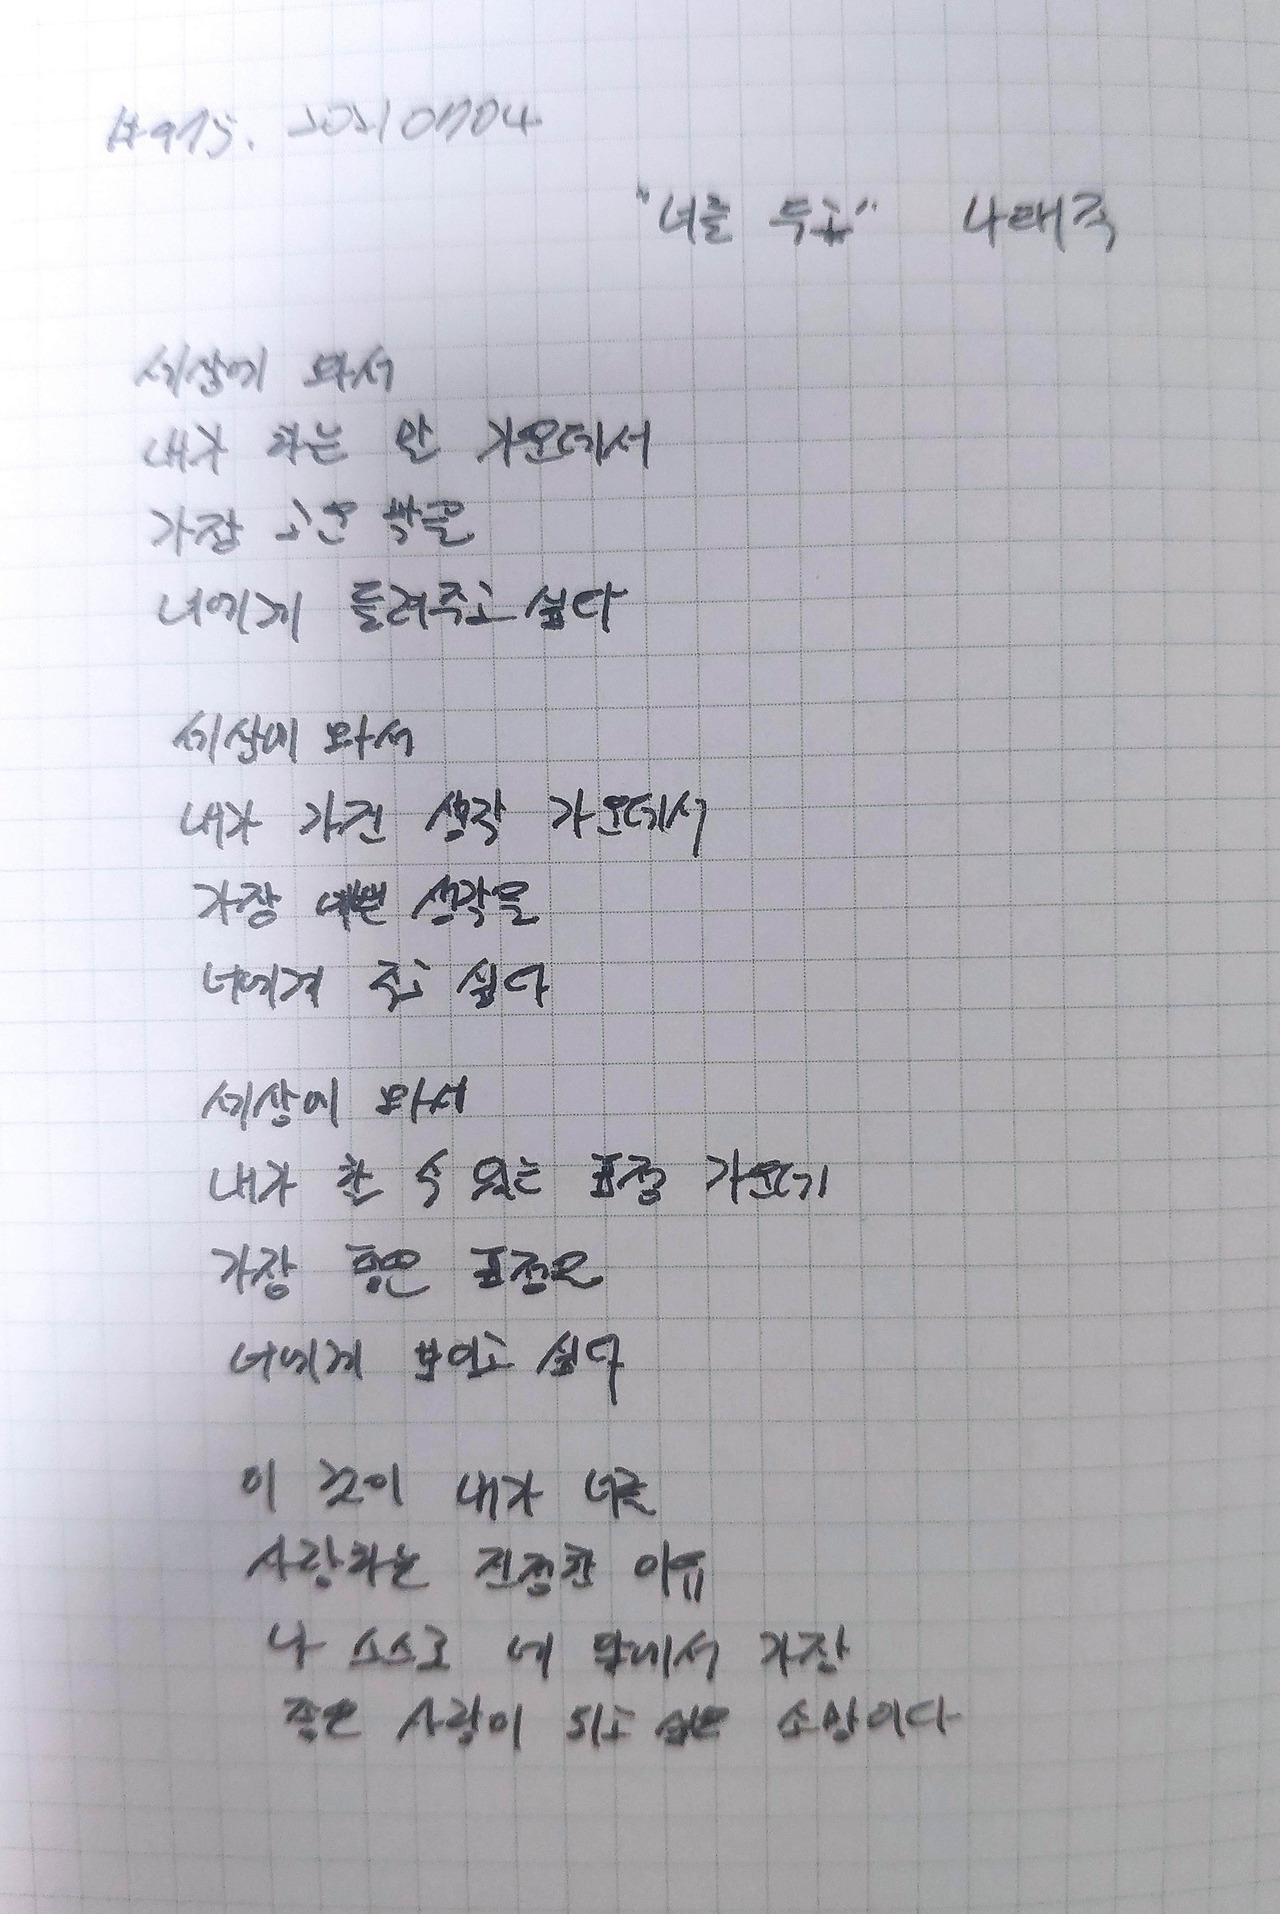 #975. 20210704
"너를 두고" 나태주
세상에 와서
내가 하는 말 가운데서
가장 고운 말을
너에게 들려주고 싶다
세상에 와서
내가 가진 생각 가운데서
가장 예쁜 생각을
너에게 주고 싶다
세상에 와서
내가 할 수 있는 표정 가운데
가장 좋은 표정을
너에게 보이고 싶다
이 것이 내가 너를
사랑하는 진정한 이유
나 스스로 네 앞에서 가장
좋은 사람이 되고 싶은 소망이다